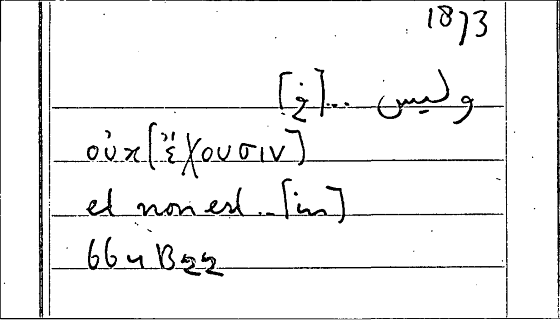 1873
وليس ... [في]
οὐκ [ἔχουσιν]
et non est .. [in]
664 B22